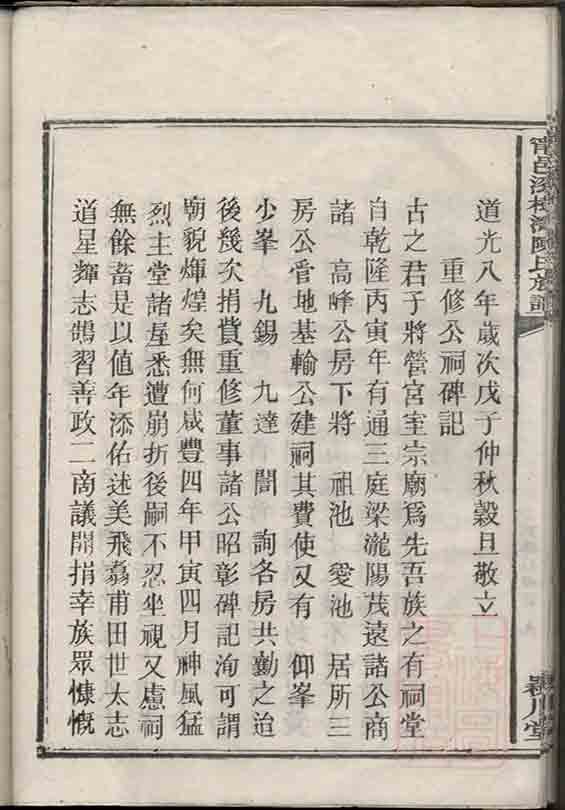 道光八年歲次戊子仲秋穀旦敬立
重修公祠碑記
古之君子將營宮室宗廟爲先吾族之有祠堂
自乾隆丙寅年有通三庭梁瀧陽茂遠諸公商
諸 高峰公房下將 祖池 愛池 居所三
房公管地基輸公建祠其費使又有 仰峯
少峯 九錫 九達 誾 詢各房共勷之迨
後幾次捐費重修董事諸公昭彰碑記洵可謂
廟貌煇煌矣無何咸豐四年甲寅四月神風猛
烈主堂諸屋悉遭崩折後嗣不忍坐視又慮祠
無餘畜是以值年添佑述美飛翥甫田世太志
道星輝志鵠習善政二商議開捐幸族眾慷慨
甯邑 陳氏族譜
潁川堂